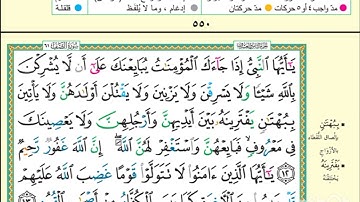 مدّ واجب ٤ أو ٥ حركات مدّ حركتان إدغام ، وما لا يُلفظ قلقلة
٥٥٠
يَٰٓأَيُّهَا ٱلنَّبِيُّ إِذَا جَآءَكَ ٱلْمُؤْمِنَٰتُ يُبَايِعْنَكَ عَلَىٰٓ أَن لَّا يُشْرِكْنَ
بِٱللَّهِ شَيْـًٔا وَلَا يَسْرِقْنَ وَلَا يَزْنِينَ وَلَا يَقْتُلْنَ أَوْلَٰدَهُنَّ وَلَا يَأْتِينَ
بِبُهْتَٰنٍ يَفْتَرِينَهُۥ بَيْنَ أَيْدِيهِنَّ وَأَرْجُلِهِنَّ وَلَا يَعْصِينَكَ
فِى مَعْرُوفٍ فَبَايِعْهُنَّ وَٱسْتَغْفِرْ لَهُنَّ ٱللَّهَ إِنَّ ٱللَّهَ غَفُورٌ رَّحِيمٌ
١٢ يَٰٓأَيُّهَا ٱلَّذِينَ ءَامَنُوا۟ لَا تَتَوَلَّوْا۟ قَوْمًا غَضِبَ ٱللَّهُ عَلَيْهِمْ
بِبُهْتَٰنٍ
بإلصاق اللُّقطاء
بالأزواج
يَفْتَرِينَهُ
يختلقنه